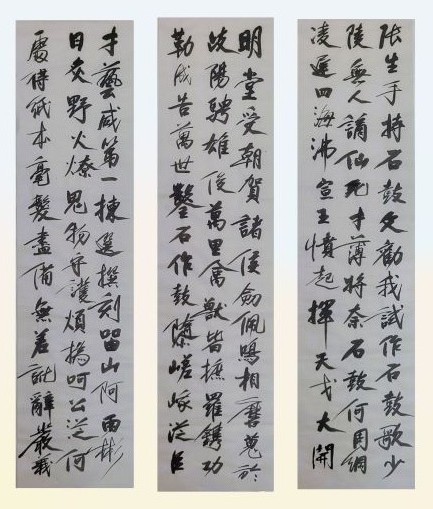 張生手持石鼓文勸我試作石鼓歌少
陵無人謫仙死才薄將奈石鼓何周綱
凌遲四海沸宣王憤起揮天戈大開
明堂受朝賀諸侯劍佩鳴相磨蒐於
岐陽騁雄俊萬里禽獸皆遮羅鐫功
勒成告萬世鑿石作鼓隳嵯峨從臣
才藝咸第一揀選撰刻留山阿雨淋
日炙野火燎鬼物守護煩撝呵公從何
處得紙本毫髮盡備無差訛辭嚴義